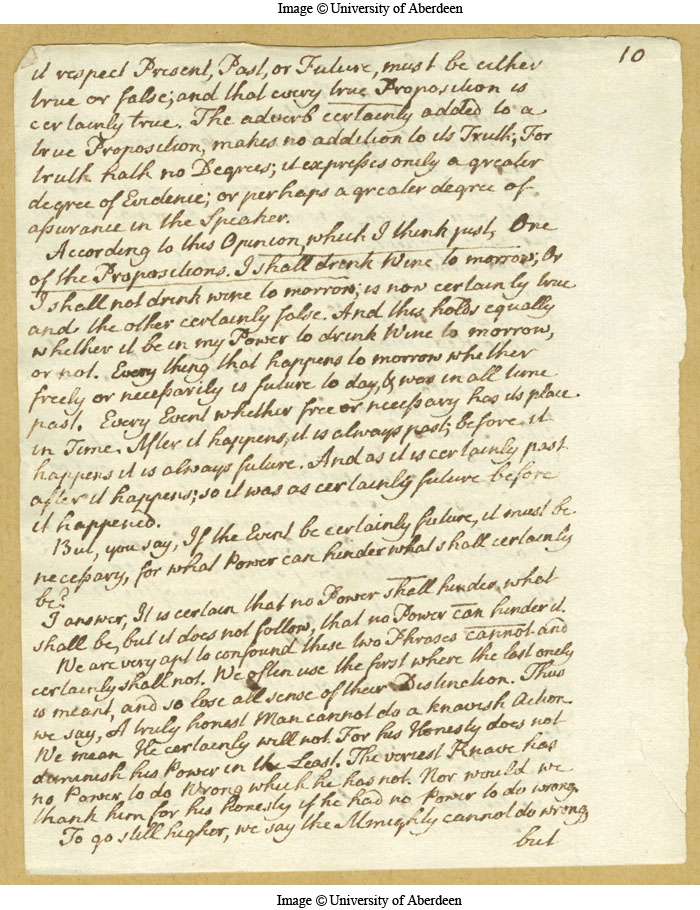 Image © University of Aberdeen
10
it respect Present, Past, or Future, must be either
true or false; and that every true Proposition is
certainly true. The adverb certainly added to a
true Proposition, makes no addition to its Truth; For
truth hath no Degrees; it expresses onely a greater
degree of Evidence; or perhaps a greater degree of
assurance in the Speaker.
According to this Opinion, which I think just, One
of the Propositions. I shall drink Wine to morrow; Or
I shall not drink wine to morrow; is now certainly true
and the other certainly false. And this holds equally
whether it be in my Power to drink Wine to morrow,
or not. Every thing that happens to morrow whether
freely or necessarily is future to day, & was in all time
past. Every Event whether free or necessary has its place
in Time. After it happens, it is always past; before it
happens it is always future. And as it is certainly past
after it happens; so it was as certainly future before
it happened.
But, you say, If the Event be certainly future, it must be
necessary, for what Power can hinder what shall certainly
be?
I answer, It is certain that no Power shall hinder what
shall be, but it does not follow, that no Power can hinder it.
We are very apt to confound these two Phrases cannot and
certainly shall not. We often use the first where the last onely
is meant, and so lose all sense of their Distinction. Thus
we say, A truly honest Man cannot do a knavish Action.
We mean He certainly will not. For his Honesty does not
diminish his Power in the Least. The veriest Knave has
no Power to do Wrong which he has not. Nor would we
thank him for his honesty if he had no Power to do wrong.
To go still higher, we say the Almighty cannot do wrong,
but
Image © University of Aberdeen